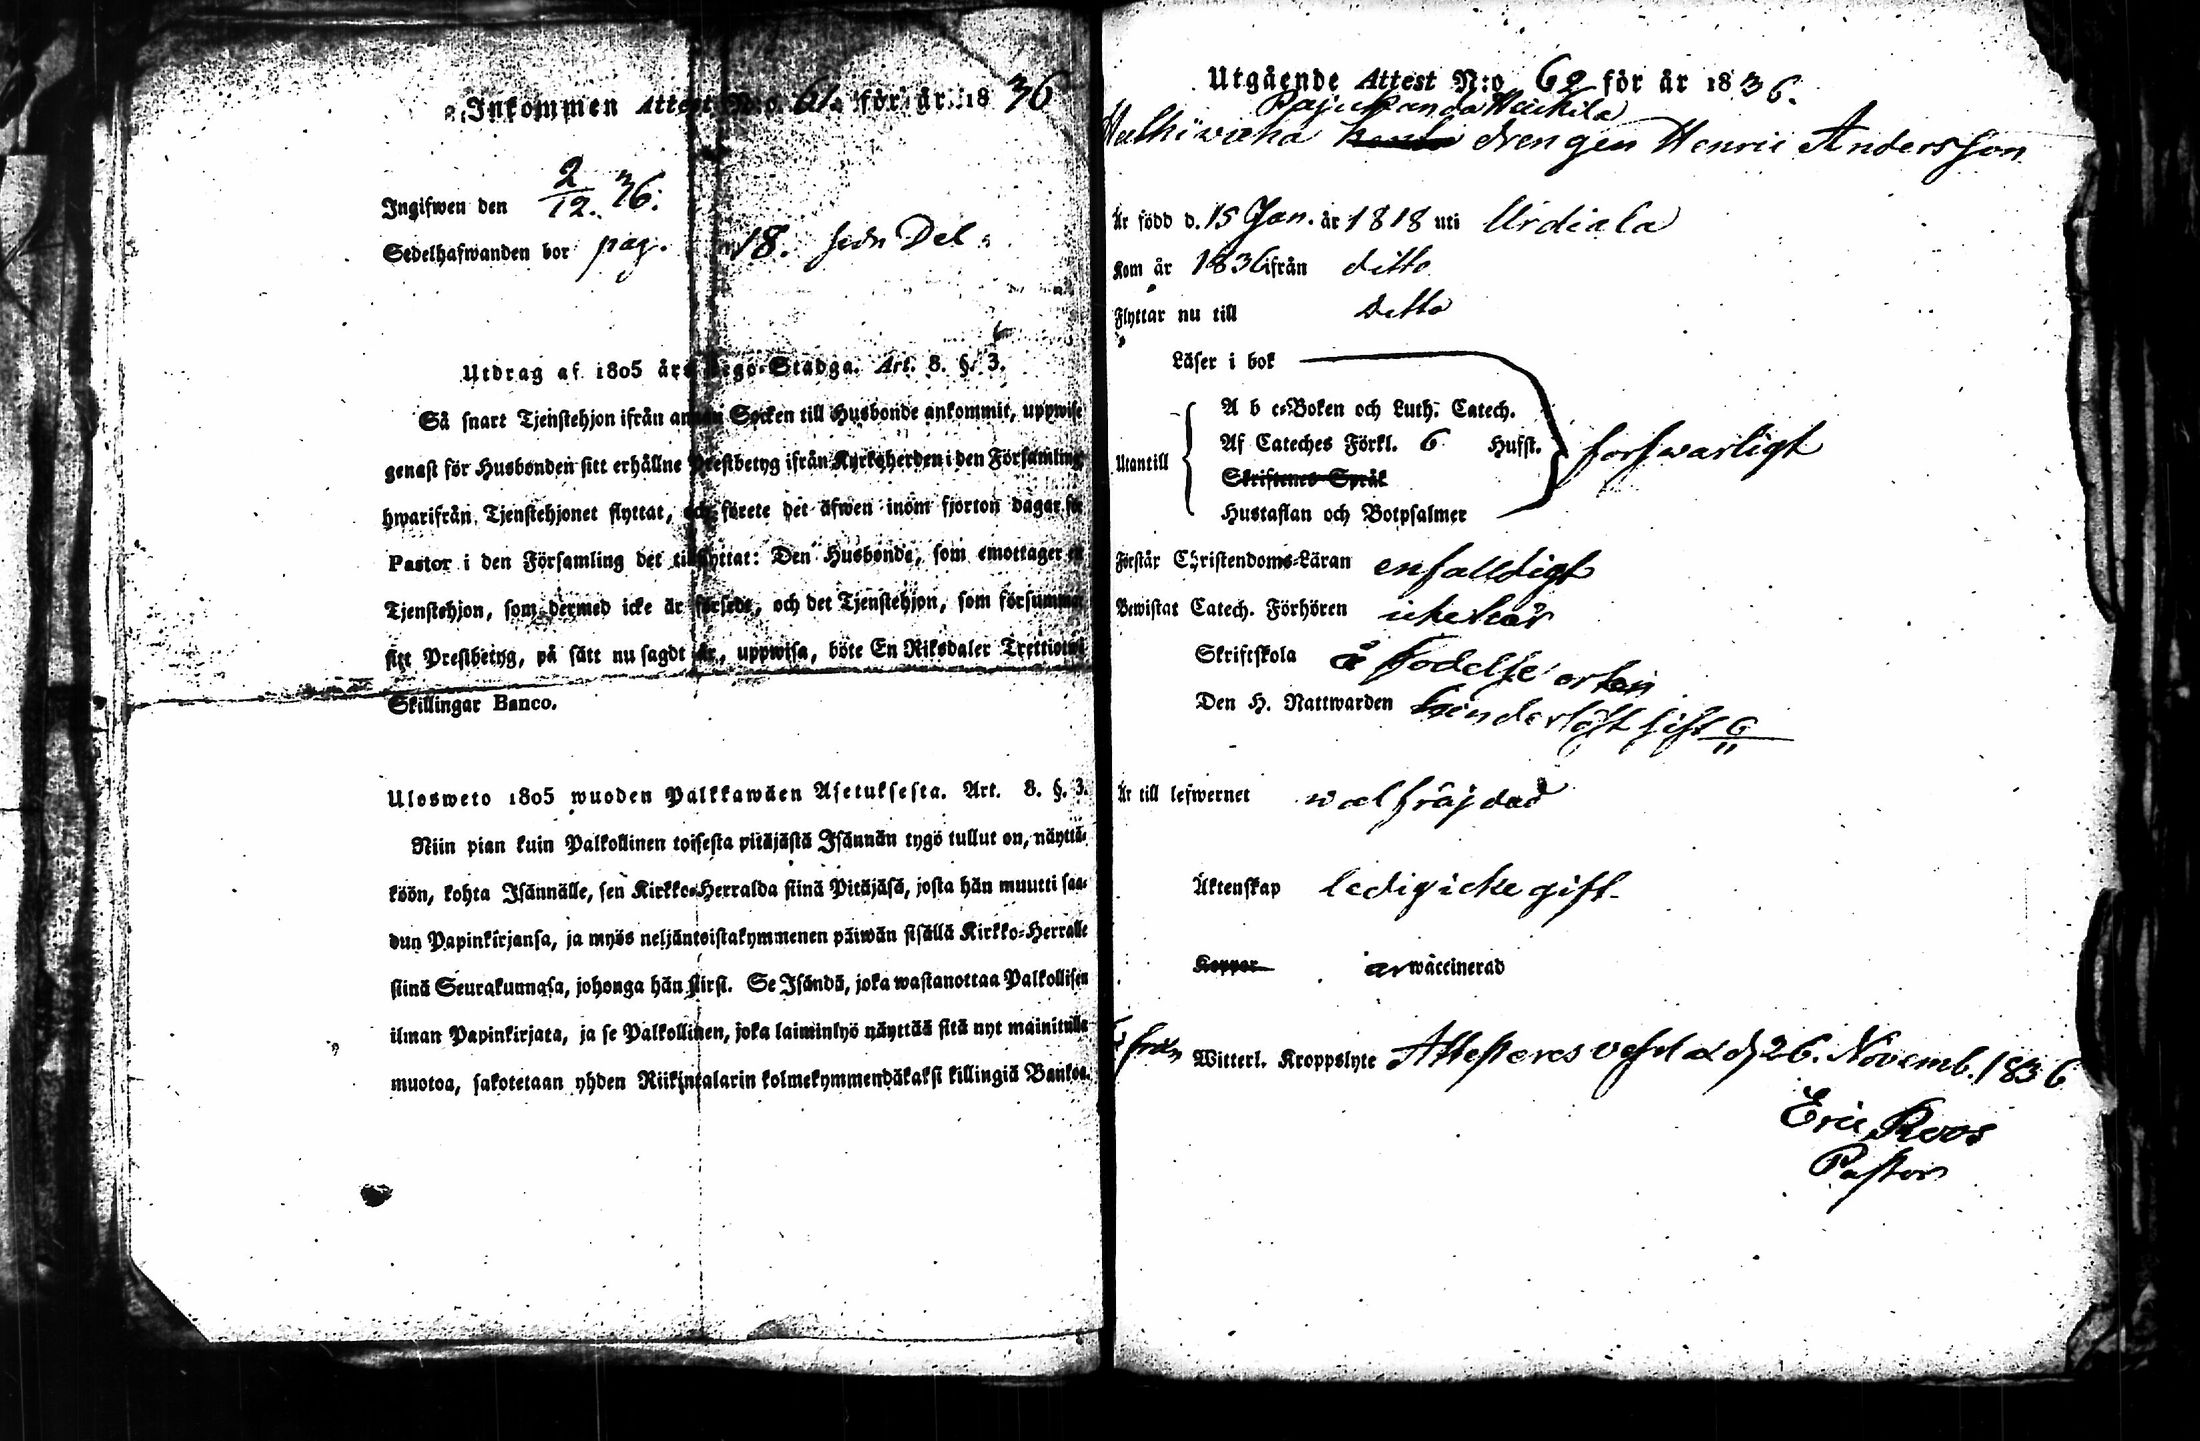 Inkommen Attest N:o 61 för år 1836
Ingifwen den 2/12. 36.
Sedelhafwanden bor pag. 18. sedn Del.
Utdrag af 1805 års Lego-Stadga. Art. 8. §. 3.
Så snart Tjenstehjon ifrån annan Socken till Husbonde ankommit, uppwise
genast för Husbonden sitt erhållne Prestbetyg ifrån Kyrkoherden i den Församling
hwarifrån Tjenstehjonet flyttat, och förete det äfwen inom fjorton dagar för
Pastor i den Församling det tillflyttat: Den Husbonde, som emottager ett
Tjenstehjon, som dermed icke är försedt, och det Tjenstehjon, som försummar
sitt Prestbetyg, på sätt nu sagdt är, uppwisa, böte En Riksdaler Trettiotwå
Skillingar Banco.
Ulosweto 1805 wuoden Palkkawäen Asetuksesta. Art. 8. §. 3.
Niin pian kuin Palkollinen toisesta pitäjästä Isännän tygö tullut on, näyttä-
köön, kohta Isännälle, sen Kirkko-Herralda siinä Pitäjäsä, josta hän muutti saa-
dun Papinkirjansa, ja myös neljäntoistakymmenen päiwän sisällä Kirkko-Herralle
siinä Seurakunnasa, johonga hän siirsi. Se Isändä, joka wastanottaa Palkollisen
ilman Papinkirjata, ja se Palkollinen, joka laiminlyö näyttää sitä nyt mainitulla
muotoa, sakotetaan yhden Riikintalarin kolmekymmendäkaksi killingiä Bankoa.
Utgående Attest N:o 62 för år 1836.
Pajukanda Heikilä
drengen Henric Andersson
Är född d. 15 Jan. år 1818 uti Urdiala
Kom år 1836 ifrån ditto
Flyttar nu till ditto
Läser i bok
A b c-Boken och Luth. Catech.
Utantill Af Cateches Förkl. 6 Hufst. forswarligt
Skriftenes Språk
Hustaflan och Botpsalmer
Förstår Christendoms-Läran enfalldigt
Bewistat Catech. Förhören icke här
Skriftskola å födelse orten
Den H. Nattwarden hinderlöst sist 6/11
Är till lefwernet wælfräjdad
Äktenskap ledig icke gift.
Koppor är waccinerad
från Witterl. Kroppslyte Attesteres d 26. Novemb. 1836
Eric Roos
Pastor